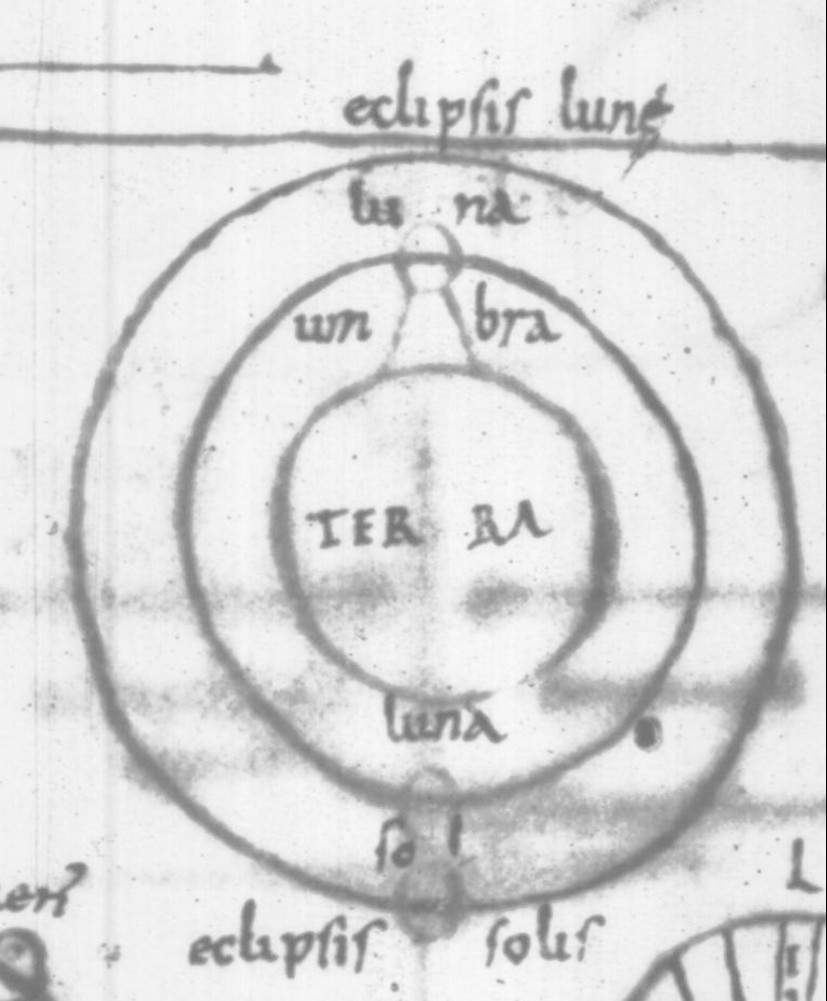 eclipsis lunę
lu na
um bra
TER RA
luna
so l
eclipsis solis
L